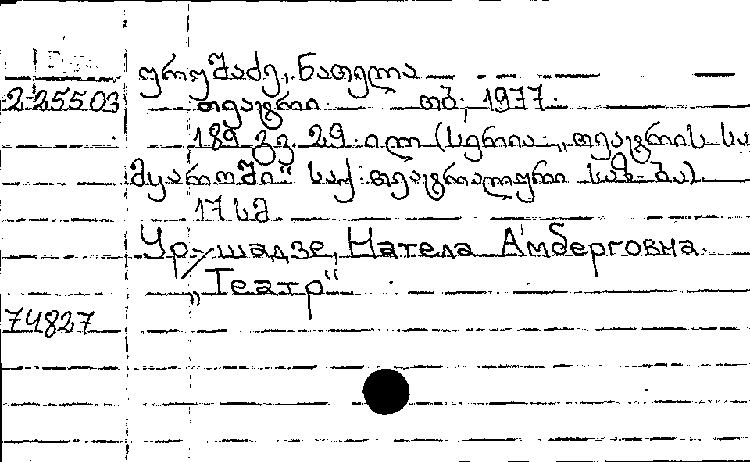 ურუშაძე, ნათელა
2-25503 თეატრი. თბ., 1977.
189 გვ. 29 ილ. (სერია: „თეატრის სა
მყაროში“ საქ. თეატრალური საზ-ბა).
17 სმ
Урушадзе, Натела Амберговна.
„Театр“
74827